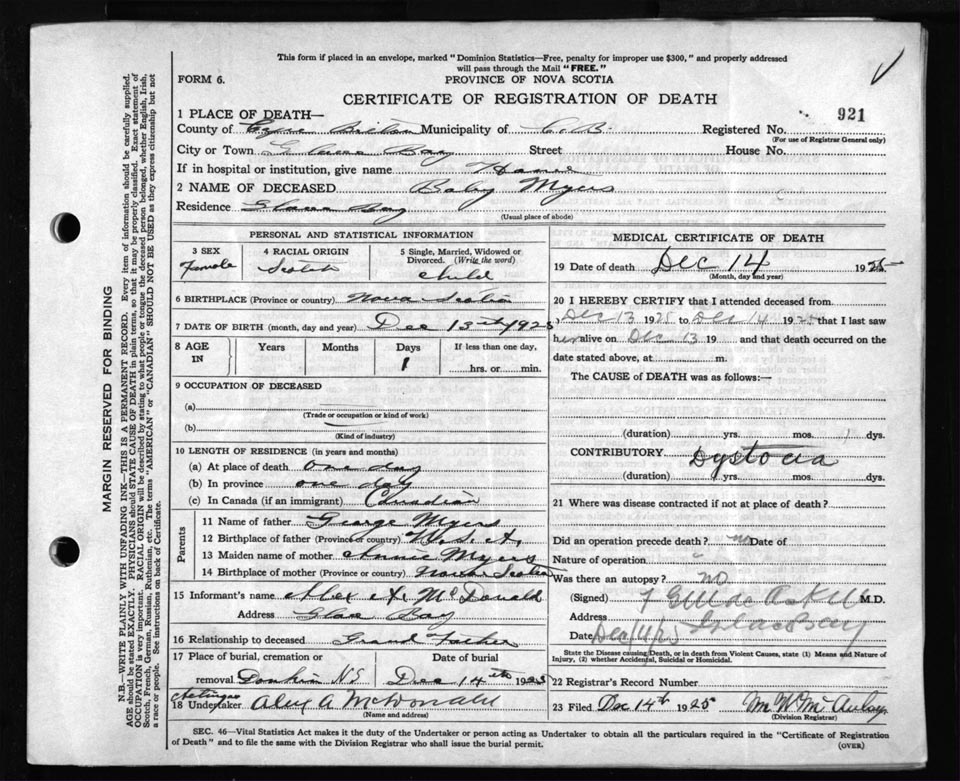 This form if placed in an envelope, marked "Dominion Statistics—Free, penalty for improper use $300," and properly addressed
will pass through the Mail "FREE."
FORM 6.
PROVINCE OF NOVA SCOTIA
CERTIFICATE OF REGISTRATION OF DEATH
921
1 PLACE OF DEATH—
County of Cape Breton Municipality of C.B. Registered No.
(For use of Registrar General only)
City or Town Glace Bay Street House No.
If in hospital or institution, give name Home
2 NAME OF DECEASED Baby Myers
Residence Glace Bay
(Usual place of abode)
PERSONAL AND STATISTICAL INFORMATION
3 SEX 4 RACIAL ORIGIN 5 Single, Married, Widowed or
Divorced. (Write the word)
Female Scotch child
6 BIRTHPLACE (Province or country) Nova Scotia
7 DATE OF BIRTH (month, day and year) Dec 13th 1925
8 AGE IN Years Months Days If less than one day,
1 hrs. or min.
9 OCCUPATION OF DECEASED
(a)
(Trade or occupation or kind of work)
(b)
(Kind of industry)
10 LENGTH OF RESIDENCE (in years and months)
(a) At place of death one day
(b) In province one day
(c) In Canada (if an immigrant) Canadian
Parents
11 Name of father George Myers
12 Birthplace of father (Province or country) U.S.A.
13 Maiden name of mother Annie Myers
14 Birthplace of mother (Province or country) Nova Scotia
15 Informant's name Alex A. McDonald
Address Glace Bay
16 Relationship to deceased Grand Father
17 Place of burial, cremation or Date of burial
removal N.S. Dec 14th 1925
Acting
18 Undertaker Alex A McDonald
(Name and address)
MEDICAL CERTIFICATE OF DEATH
19 Date of death Dec 14 1925
(Month, day and year)
20 I HEREBY CERTIFY that I attended deceased from
Dec 13 1925 to Dec 14 1925 that I last saw
her alive on Dec 13 19 and that death occurred on the
date stated above, at m.
The CAUSE of DEATH was as follows:—
(duration) yrs. mos. 1 dys.
CONTRIBUTORY Dystocia
(duration) yrs. mos. dys.
21 Where was disease contracted if not at place of death?
Did an operation precede death? no Date of
Nature of operation
Was there an autopsy? no
(Signed) M.D.
Address Glace Bay
Date Dec/14/25
State the Disease causing Death, or in death from Violent Causes, state (1) Means and Nature of
Injury, (2) whether Accidental, Suicidal or Homicidal.
22 Registrar's Record Number
23 Filed Dec 14th 1925
(Division Registrar)
SEC. 46—Vital Statistics Act makes it the duty of the Undertaker or person acting as Undertaker to obtain all the particulars required in the "Certificate of Registration
of Death" and to file the same with the Division Registrar who shall issue the burial permit.
(OVER)
MARGIN RESERVED FOR BINDING
N.B.—WRITE PLAINLY WITH UNFADING INK—THIS IS A PERMANENT RECORD. Every item of information should be carefully supplied.
AGE should be stated EXACTLY. PHYSICIANS should STATE CAUSE OF DEATH in plain terms, so that it may be properly classified. Exact statement of
OCCUPATION is very important. RACIAL ORIGIN will be described by stating to what people or tongue the deceased person belonged, whether English, Irish,
Scotch, French, German, Russian, Ruthenian, etc. The terms "AMERICAN" or "CANADIAN" SHOULD NOT BE USED as they express citizenship but not
a race or people. See instructions on back of Certificate.